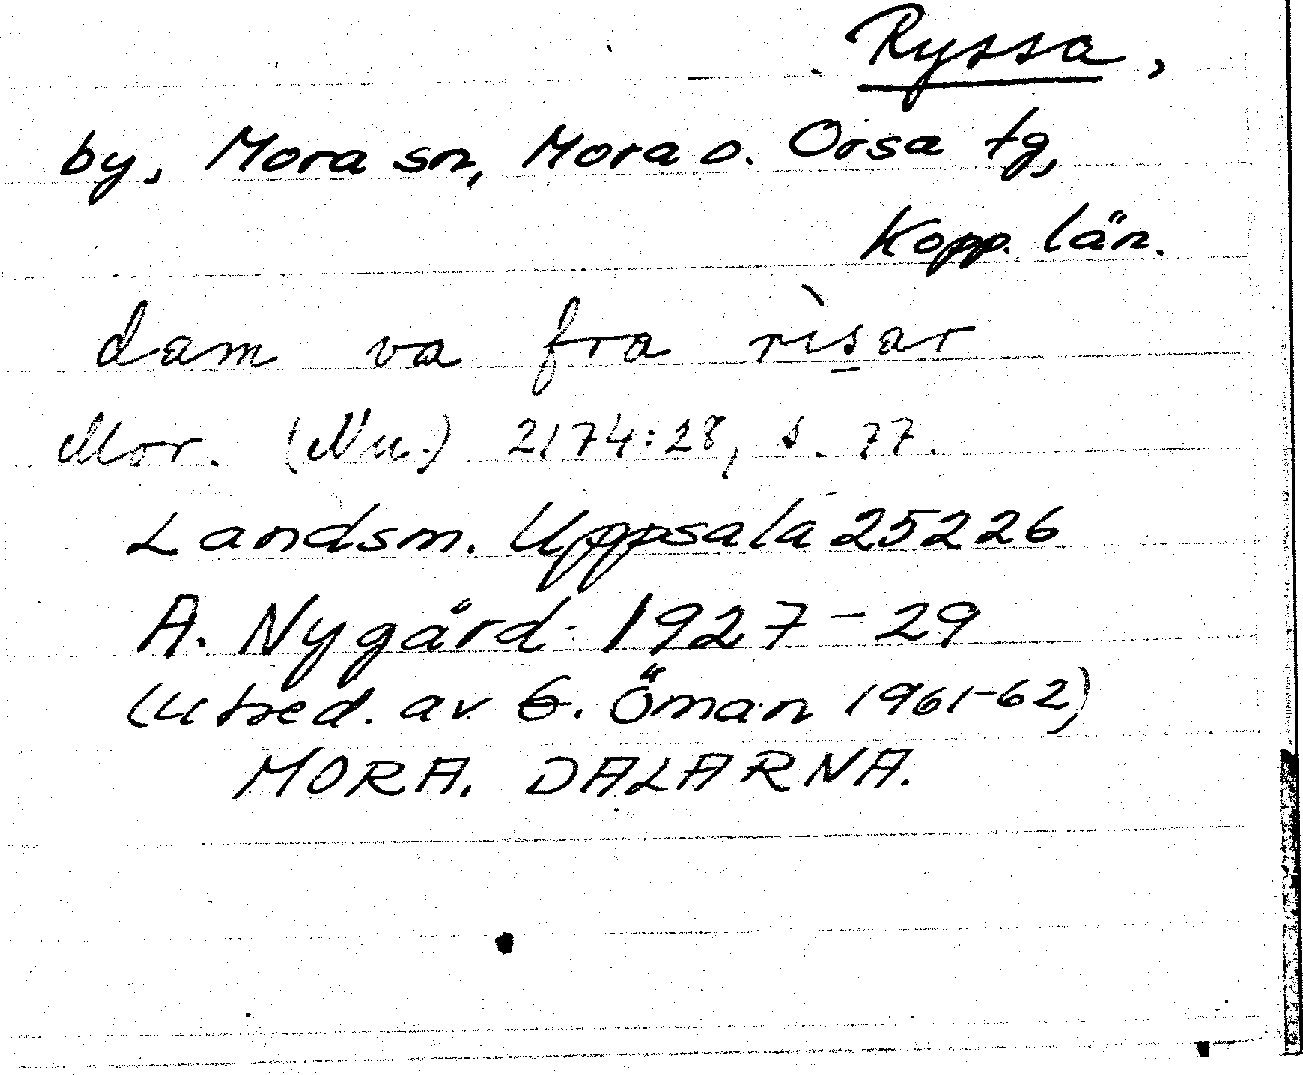 Ryssa,
by, Mora sn, Mora o. Orsa tg,
Kopp. län.
dam va fra rìsar
Mor. (Nu.) 2174:28, s. 77.
Landsm. Uppsala 25226
A. Nygård 1927-29
(Utred. av G. Öman 1961-62)
MORA. DALARNA.